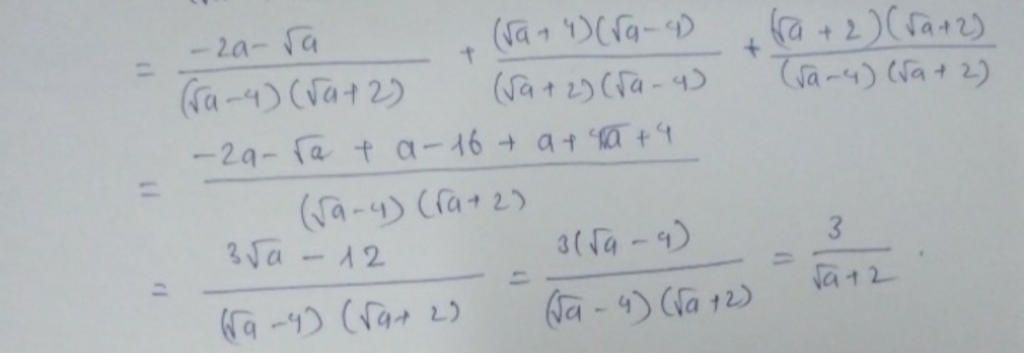 = (-2a - √a)/((√a - 4)(√a + 2)) + ((√a + 4)(√a - 4))/((√a + 2)(√a - 4)) + ((√a + 2)(√a + 2))/((√a - 4)(√a + 2))
= (-2a - √a + a - 16 + a + 4√a + 4)/((√a - 4)(√a + 2))
= (3√a - 12)/((√a - 4)(√a + 2)) = (3(√a - 4))/((√a - 4)(√a + 2)) = 3/(√a + 2) .